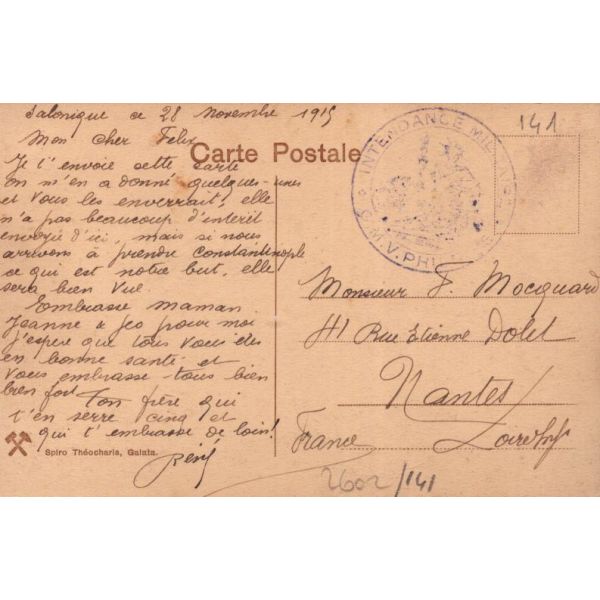 Salonique ce 28 Novembre 1915
Mon cher Felix
Je t'envoie cette carte
on m'en a donné quelques-unes
et vous les enverrait, elle
n'a pas beaucoup d'interêt
envoyée d'ici, mais si nous
arrivons à prendre Constantinople
ce qui est notre but, elle
sera bien vue.
Embrasse maman
Jeanne & Geo pour moi
j'espère que tous vous êtes
en bonne santé et
vous embrasse tous bien
bien fort Ton frère qui
t'en serre cinq et
qui t'embrasse de loin!
René
Spiro Théocharis, Galata.
Carte Postale
INTENDANCE MILITAIRE
M.V.PH
141
Monsieur F. Mocquard
41 Rue Etienne Dolet
Nantes
France Loire Infre
2602/141